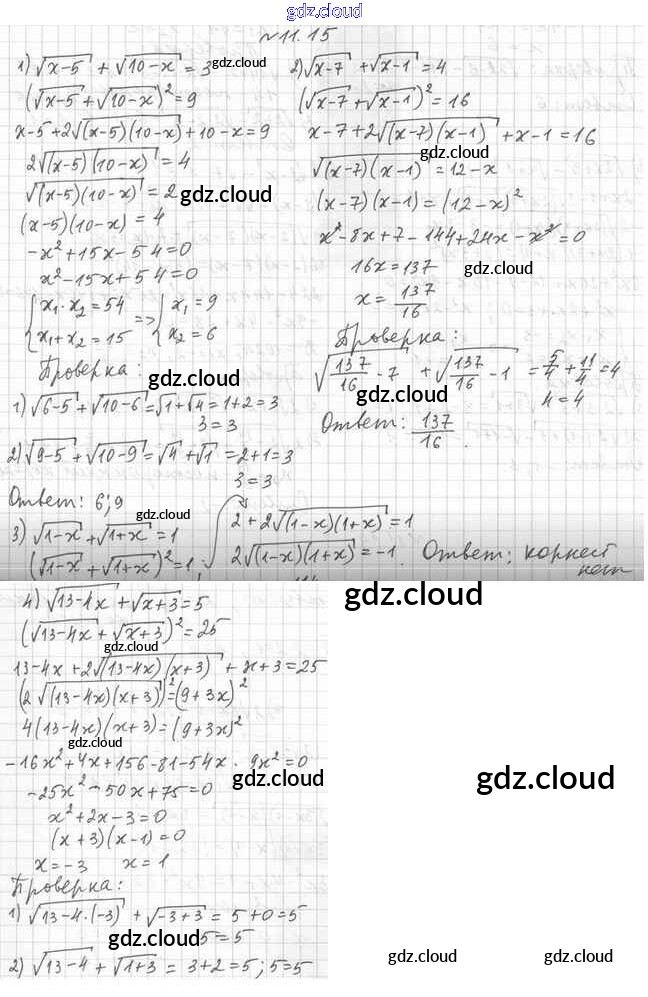 gdz.cloud
№11.15
1) √(x-5) + √(10-x) = 3 gdz.cloud
(√(x-5) + √(10-x))² = 9
x-5+2√((x-5)(10-x)) + 10-x = 9
2√((x-5)(10-x)) = 4
√((x-5)(10-x)) = 2 gdz.cloud
(x-5)(10-x) = 4
-x²+15x-54=0
x²-15x+54=0
{x₁·x₂=54
x₁+x₂=15 => {x₁=9
x₂=6
Проверка:
gdz.cloud
1) √(6-5) + √(10-6) = √1+√4 = 1+2=3
3=3
2) √(9-5) + √(10-9) = √4 + √1 = 2+1=3
3=3
Ответ: 6; 9 gdz.cloud
2) √(x-7) + √(x-1) = 4
(√(x-7) + √(x-1))² = 16
x-7+2√((x-7)(x-1)) + x-1 = 16
gdz.cloud
√((x-7)(x-1)) = 12-x
(x-7)(x-1) = (12-x)²
x²-8x+7-144+24x-x²=0
16x=137 gdz.cloud
x = 137/16
Проверка:
√(137/16 - 7) + √(137/16 - 1) = 5/4 + 11/4 = 4
gdz.cloud 4=4
Ответ: 137/16.
3) √(1-x) + √(1+x) = 1
(√(1-x) + √(1+x))² = 1;
2+2√((1-x)(1+x)) = 1
2√((1-x)(1+x)) = -1. Ответ: корней
нет
4) √(13-4x) + √(x+3) = 5 gdz.cloud
(√(13-4x) + √(x+3))² = 25
gdz.cloud
13-4x+2√((13-4x)(x+3)) + x+3=25
(2√((13-4x)(x+3)))² = (9+3x)²
4(13-4x)(x+3) = (9+3x)²
gdz.cloud
-16x²+4x+156-81-54x-9x²=0
gdz.cloud gdz.cloud
-25x²-50x+75=0
x²+2x-3=0
(x+3)(x-1)=0
gdz.cloud
x=-3 x=1
Проверка:
1) √(13-4·(-3)) + √(-3+3) = 5+0=5
gdz.cloud 5=5
2) √(13-4) + √(1+3) = 3+2=5; 5=5
gdz.cloud gdz.cloud